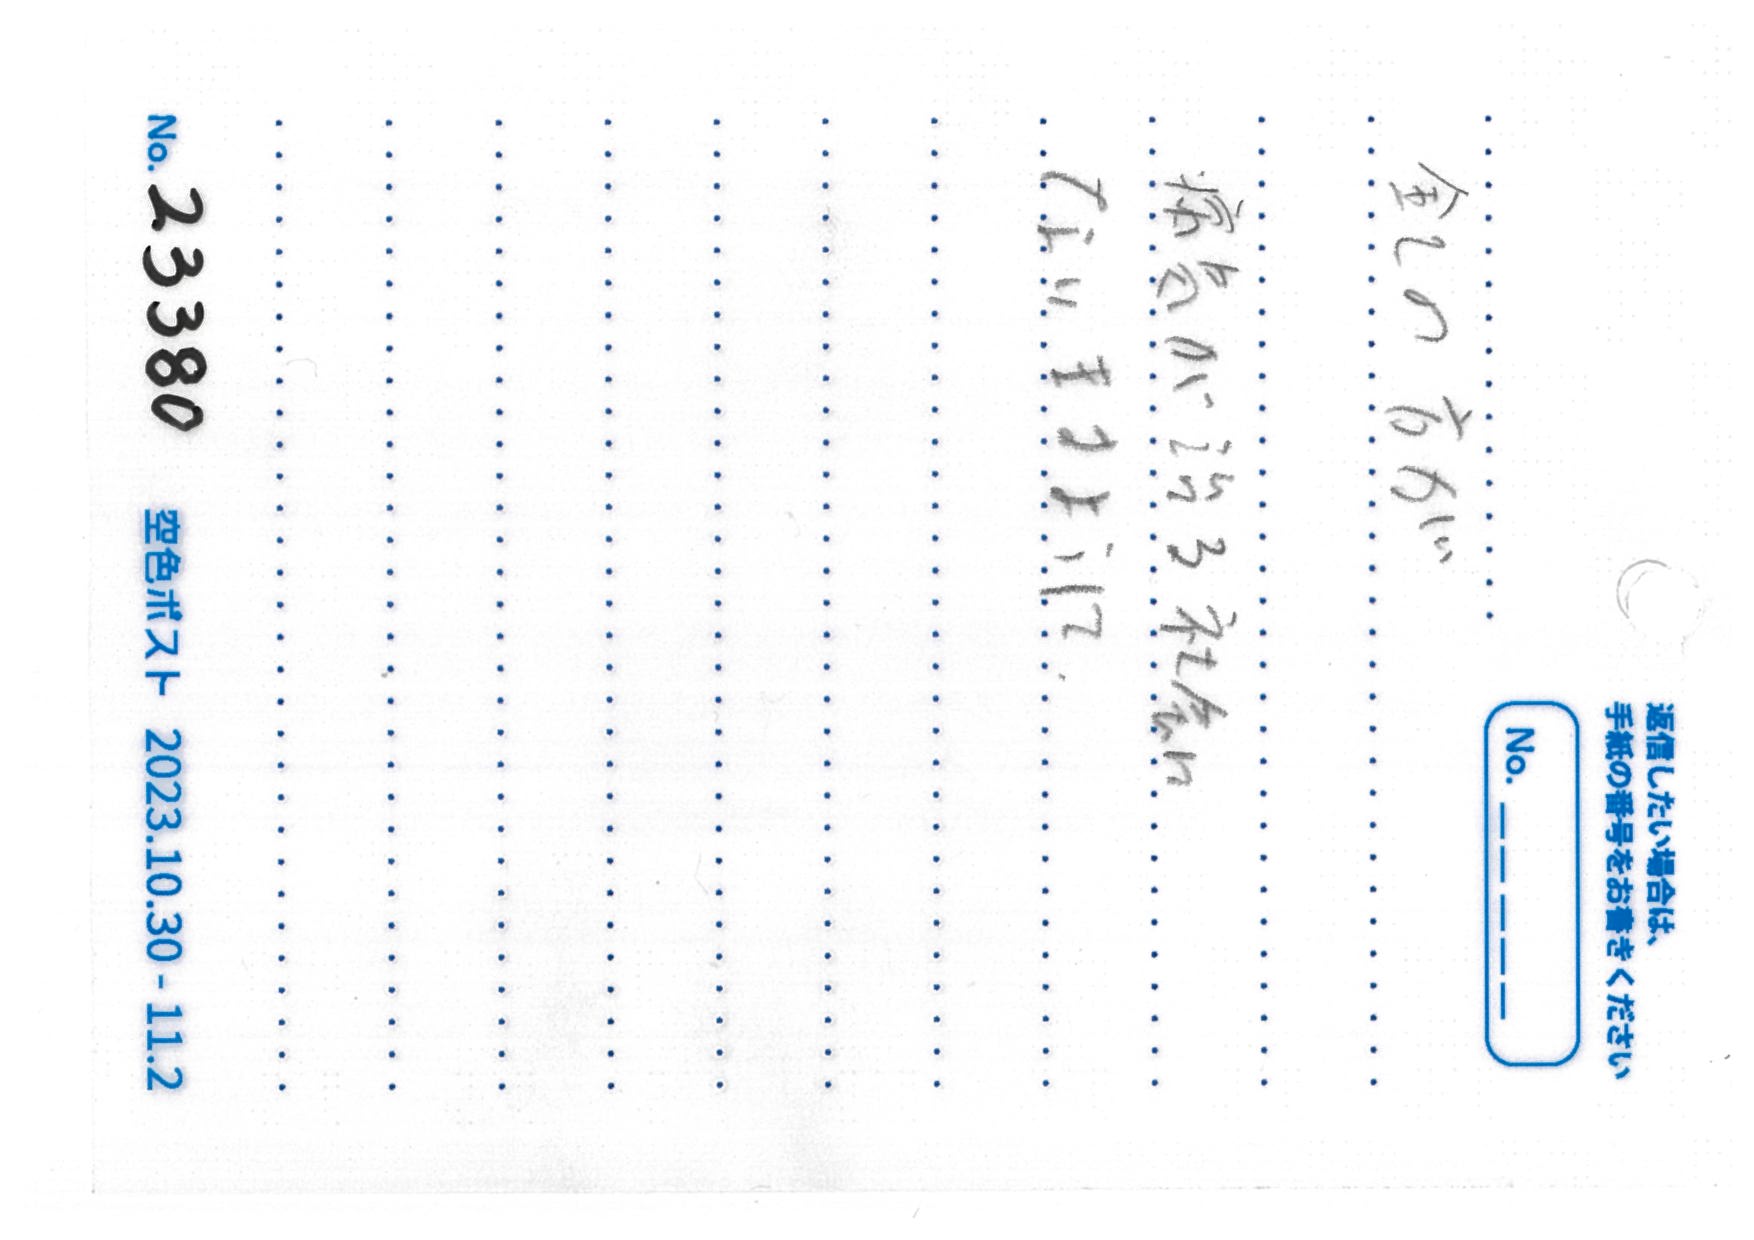 返信したい場合は、
手紙の番号をお書きください
No. _ _ _ _ _
全ての方が
病気が治る社会に
なりますように.
No. 23380 空色ポスト 2023.10.30 - 11.2